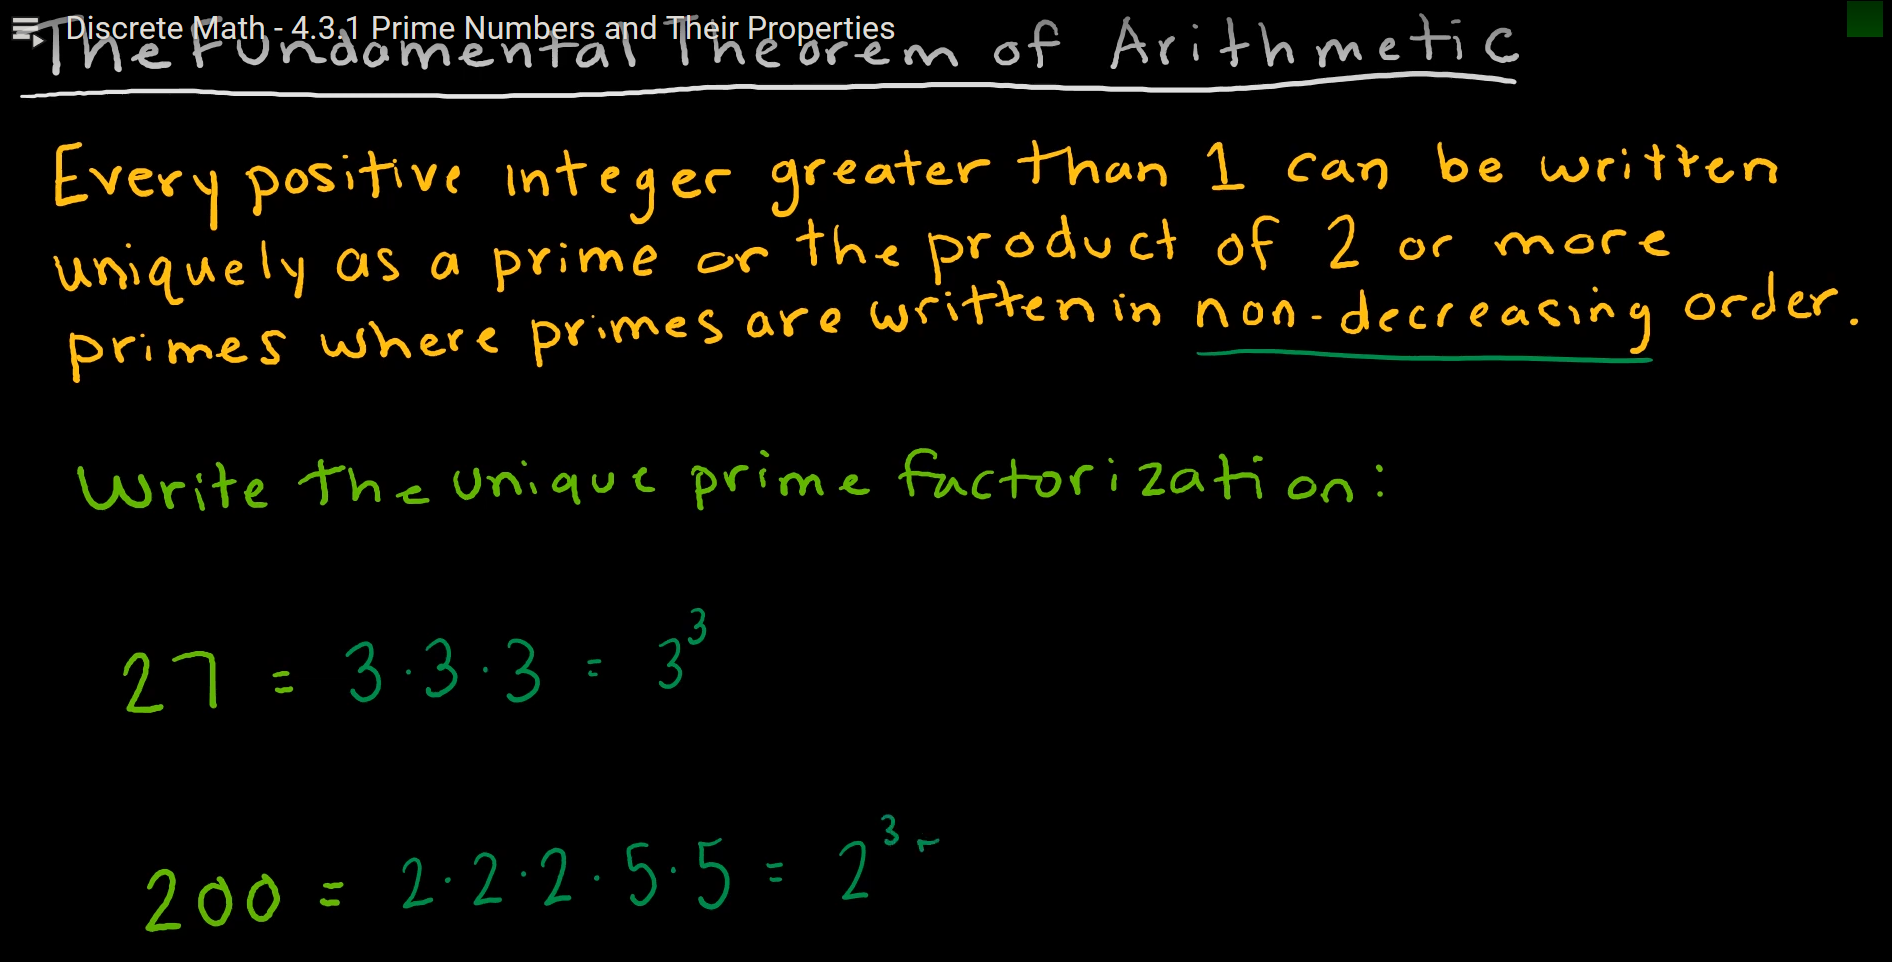 Discrete Math - 4.3.1 Prime Numbers and Their Properties
The Fundamental Theorem of Arithmetic
Every positive integer greater than 1 can be written
uniquely as a prime or the product of 2 or more
primes where primes are written in non-decreasing order.
Write the unique prime factorization:
27 = 3·3·3 = 3³
200 = 2·2·2·5·5 = 2³